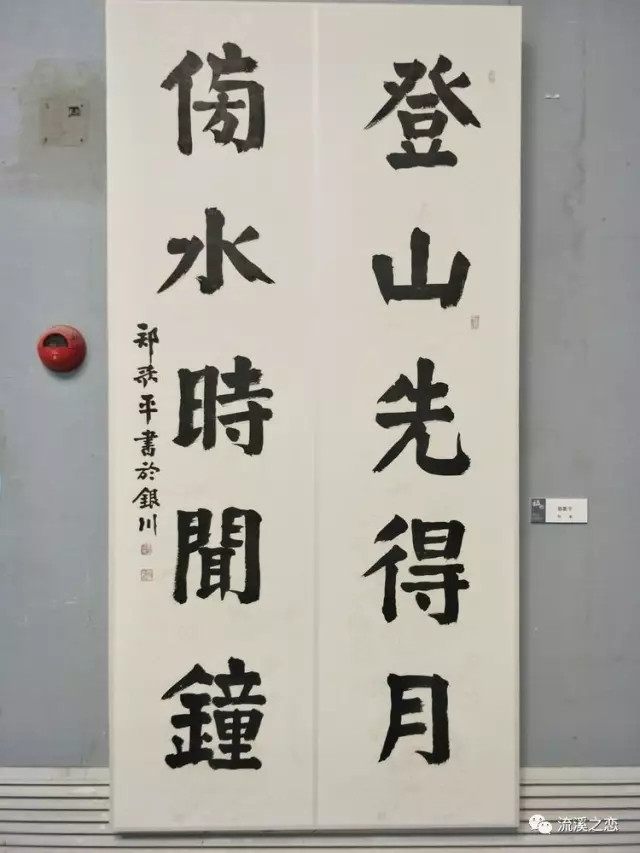 登山先得月
傍水時聞鐘
祁□平書於銀川
流溪之恋